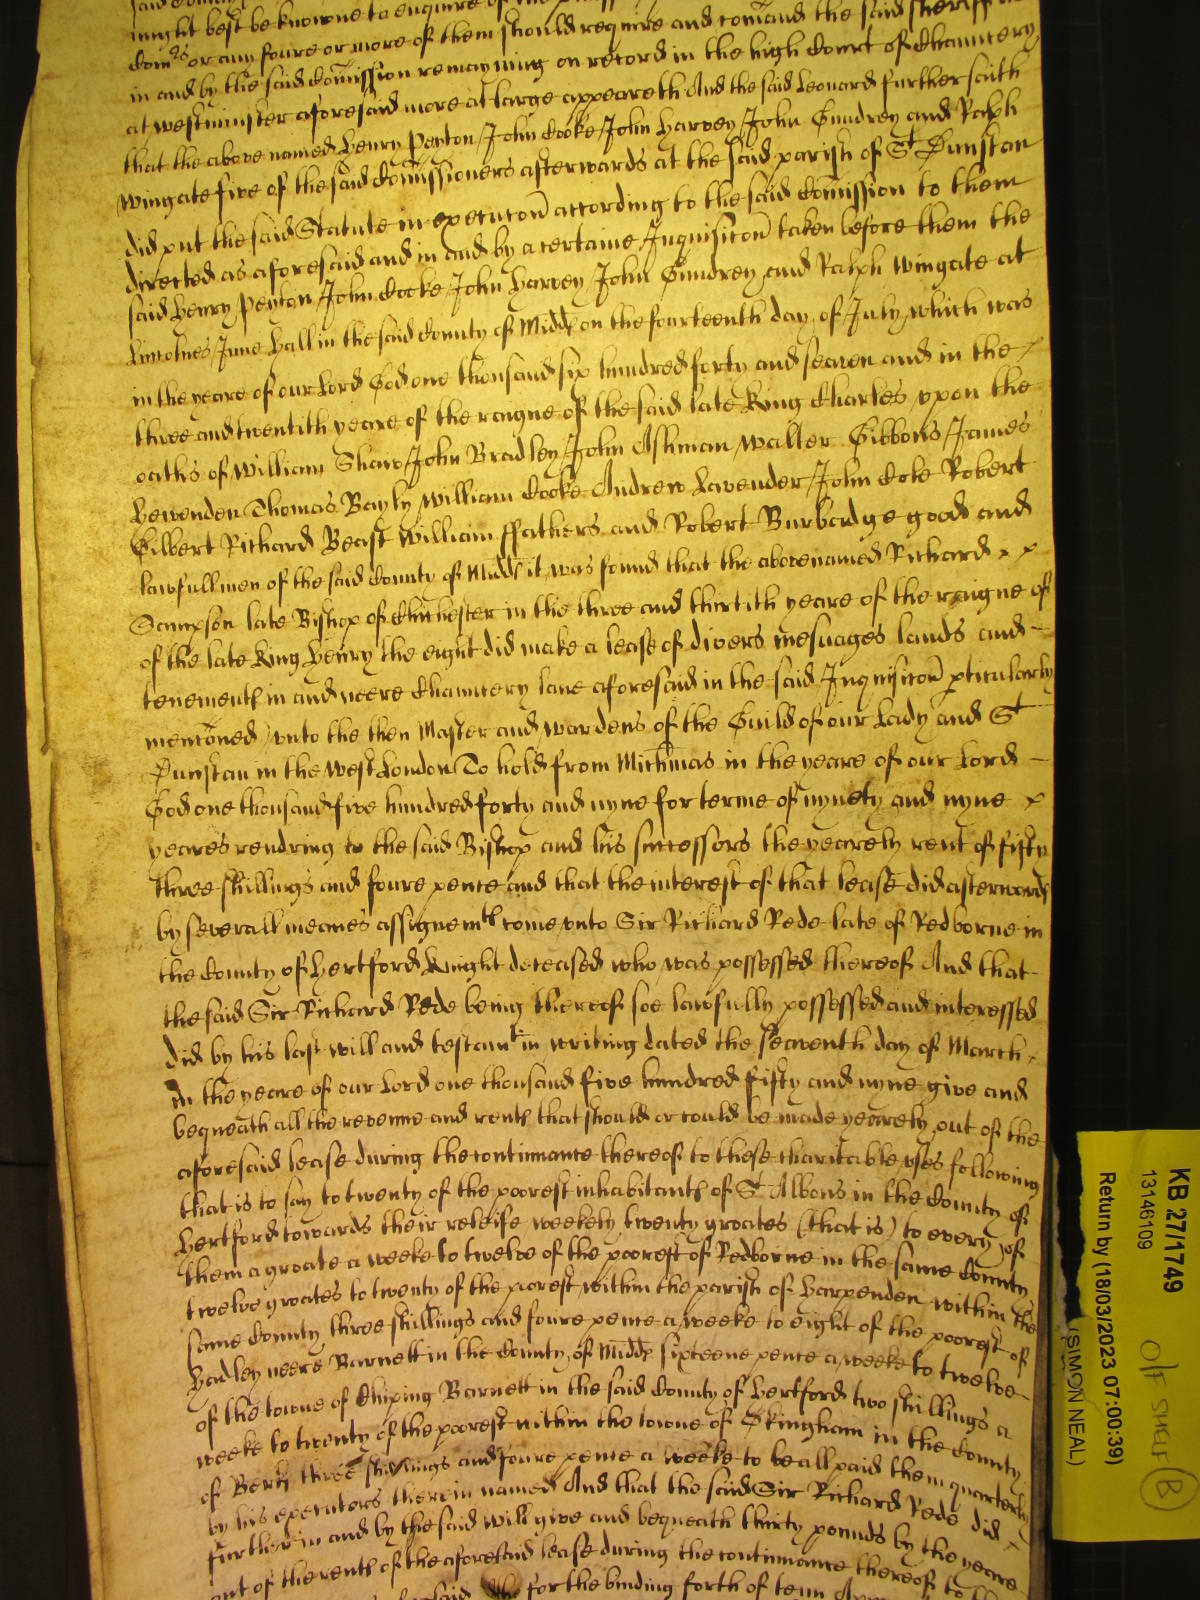 might best be knowne to enquire of the
Com.rs or any foure or more of them should require and com̄and the said Sheriff
in and by the said Com̄ission remayning on record in the high Court of Chauncery
at Westminster aforesaid more at large appeareth And the said Leonard further saith
that the above named Henry Penton John Cooke John Harvey John Gundrey and Ralph
Wingate five of the said Com̄issioners afterwards at the said parish of St Dunstan
did put the said Statute in execucon̄ according to the said Com̄ission to them
directed as aforesaid and in and by a certaine Inquisicon̄ taken before them the
said Henry Penton John Cooke John Harvey John Gundrey and Ralph Wingate at
Lincolnes Inne Hall in the said County of Midd on the fourteenth day of July which was
in the yeare of our Lord God one thousand six hundred forty and seaven and in the
three and twentith yeare of the raigne of the said late King Charles upon the
oathes of William Shaw John Bradley John Ashman Walter Gibbons James
Hewenden Thomas Bayly William Cooke Andrew Lavender John Cole Robert
Gilbert Richard Beast William ffathers and Robert Burbedge good and
lawfull men of the said County of Midd it was found that the abovenamed Richard x x
Sampson late Bishop of Chichester in the three and thirtith yeare of the raigne of
of the late King Henry the eight did make a lease of divers mesuages lands and
tenements in and neere Chauncery lane aforesaid in the said Inquisicon̄ pticularly
menconed vnto the then Master and Wardens of the Guild of our Lady and St
Dunstan in the West London To hold from Michmas in the yeare of our Lord
God one thousand five hundred forty and nyne for terme of nynety and nyne x
yeares rendring to the said Bishop and his successors the yearely rent of fifty
three shillings and foure pence and that the interest of that lease did afterwards
by severall meanes assignemts come vnto Sir Richard Rede late of Redborne in
the County of Hertford Knight deceased who was possessed thereof And that
the said Sir Richard Rede being thereof soe lawfully possessed and interessed
did by his last will and testamt in writing dated the seaventh day of March
in the yeare of our Lord one thousand five hundred fifty and nyne give and
bequeath all the revenue and rents that should or could be made yearely out of the
aforesaid lease during the continuance thereof to these charitable vses following
that is to say to twenty of the poorest inhabitants of St Albons in the County of
Hertford towards their releife weekely twenty groates (that is) to every of
them a groate a weeke to twelve of the poorest of Redborne in the same County
twelve groates to twenty of the poorest within the parish of Harpenden within the
same County three shillings and foure pence a weeke to eight of the poorest of
Hadley neere Barnett in the County of Midd sixteene pence a weeke to twelve
of the towne of Chiping Barnett in the said County of Hertford two shillings a
weeke to twenty of the poorest within the towne of Okingham in the County
of Berks three shillings and foure pence a weeke to be all paid them quarterly
by his executors therein named And that the said Sir Richard Rede did
further in and by the said will give and bequeath thirty pounds by the yeare
out of the rents of the aforesaid lease during the continuance thereof to
for the binding forth of tenn
KB 27/1749
13146109
Return by (18/03/2023 07:00:39)
(SIMON NEAL)
O/F SHELF B